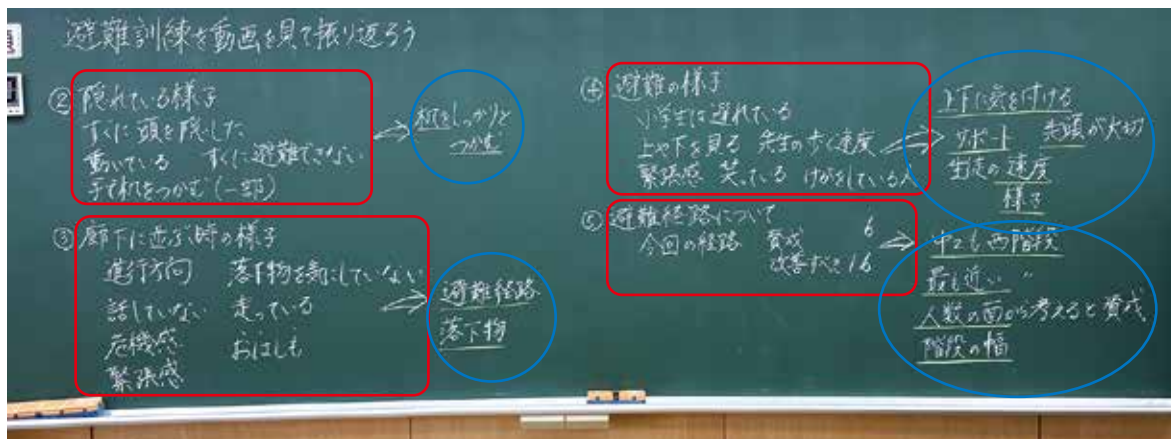 避難訓練を動画を見て振り返ろう
② 隠れている様子
すぐに頭を隠した
動いている すぐに避難できない
手で机をつかむ(一部)
机をしっかりと
つかむ
③ 廊下に並ぶ時の様子
進行方向 落下物を気にしていない
話していない 走っている
危機感 おはしも
緊張感
避難経路
落下物
④ 避難の様子
小学生は遅れている
上や下を見る 先生の歩く速度
緊張感 笑っている けがをしている人
上下に気を付ける
サポート 先頭が大切
生徒の速度
様子
⑤ 避難経路について
今回の経路 賛成 6
改善すべき 16
中でも西階段
最も近い 〃
人数の面から考えると賛成
階段の幅